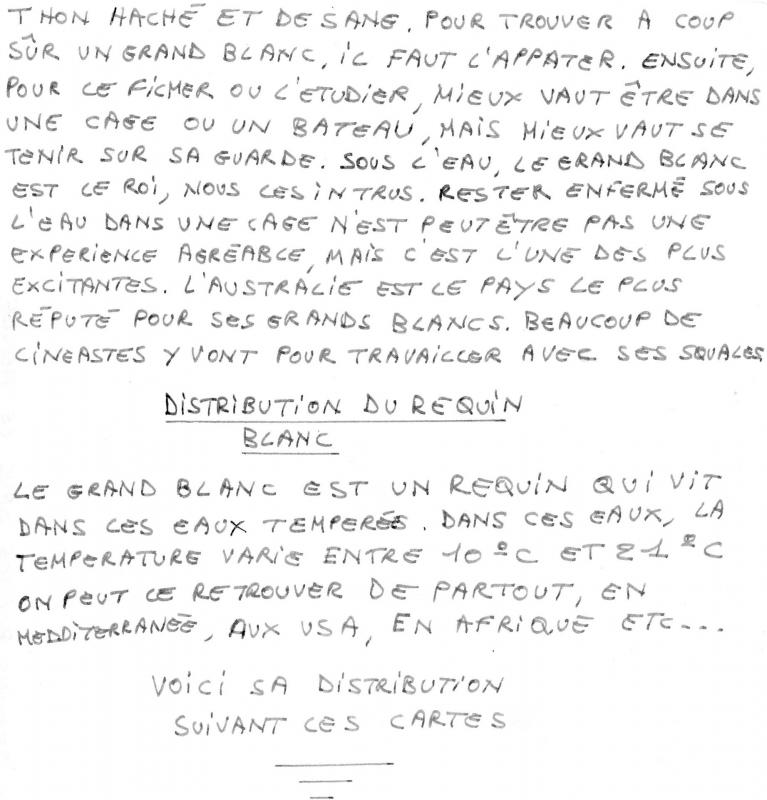 THON HACHÉ ET DE SANG. POUR TROUVER A COUP
SÛR UN GRAND BLANC, IL FAUT L'APPATER. ENSUITE,
POUR LE FICMER OU L'ETUDIER, MIEUX VAUT ÊTRE DANS
UNE CAGE OU UN BATEAU, MAIS MIEUX VAUT SE
TENIR SUR SA GUARDE. SOUS L'EAU, LE GRAND BLANC
EST LE ROI, NOUS LES INTRUS. RESTER ENFERMÉ SOUS
L'EAU DANS UNE CAGE N'EST PEUT ÊTRE PAS UNE
EXPERIENCE AGRÉABLE, MAIS C'EST L'UNE DES PLUS
EXCITANTES. L'AUSTRALIE EST LE PAYS LE PLUS
RÉPUTÉ POUR SES GRANDS BLANCS. BEAUCOUP DE
CINEASTES Y VONT POUR TRAVAILLER AVEC SES SQUALES
DISTRIBUTION DU REQUIN
BLANC
LE GRAND BLANC EST UN REQUIN QUI VIT
DANS LES EAUX TEMPERÉE. DANS CES EAUX, LA
TEMPERATURE VARIE ENTRE 10°C ET 21°C
ON PEUT LE RETROUVER DE PARTOUT, EN
MEDDITERRANÉE, AUX USA, EN AFRIQUE ETC...
VOICI SA DISTRIBUTION
SUIVANT LES CARTES